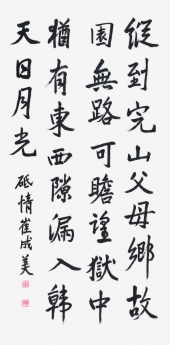 縱到完山父母鄉故
園無路可瞻望獄中
猶有東西隙漏入韓
天日月光
砥情崔成美